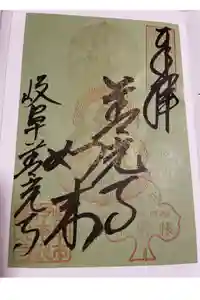 奉拝
善光寺
如来
岐阜善光寺